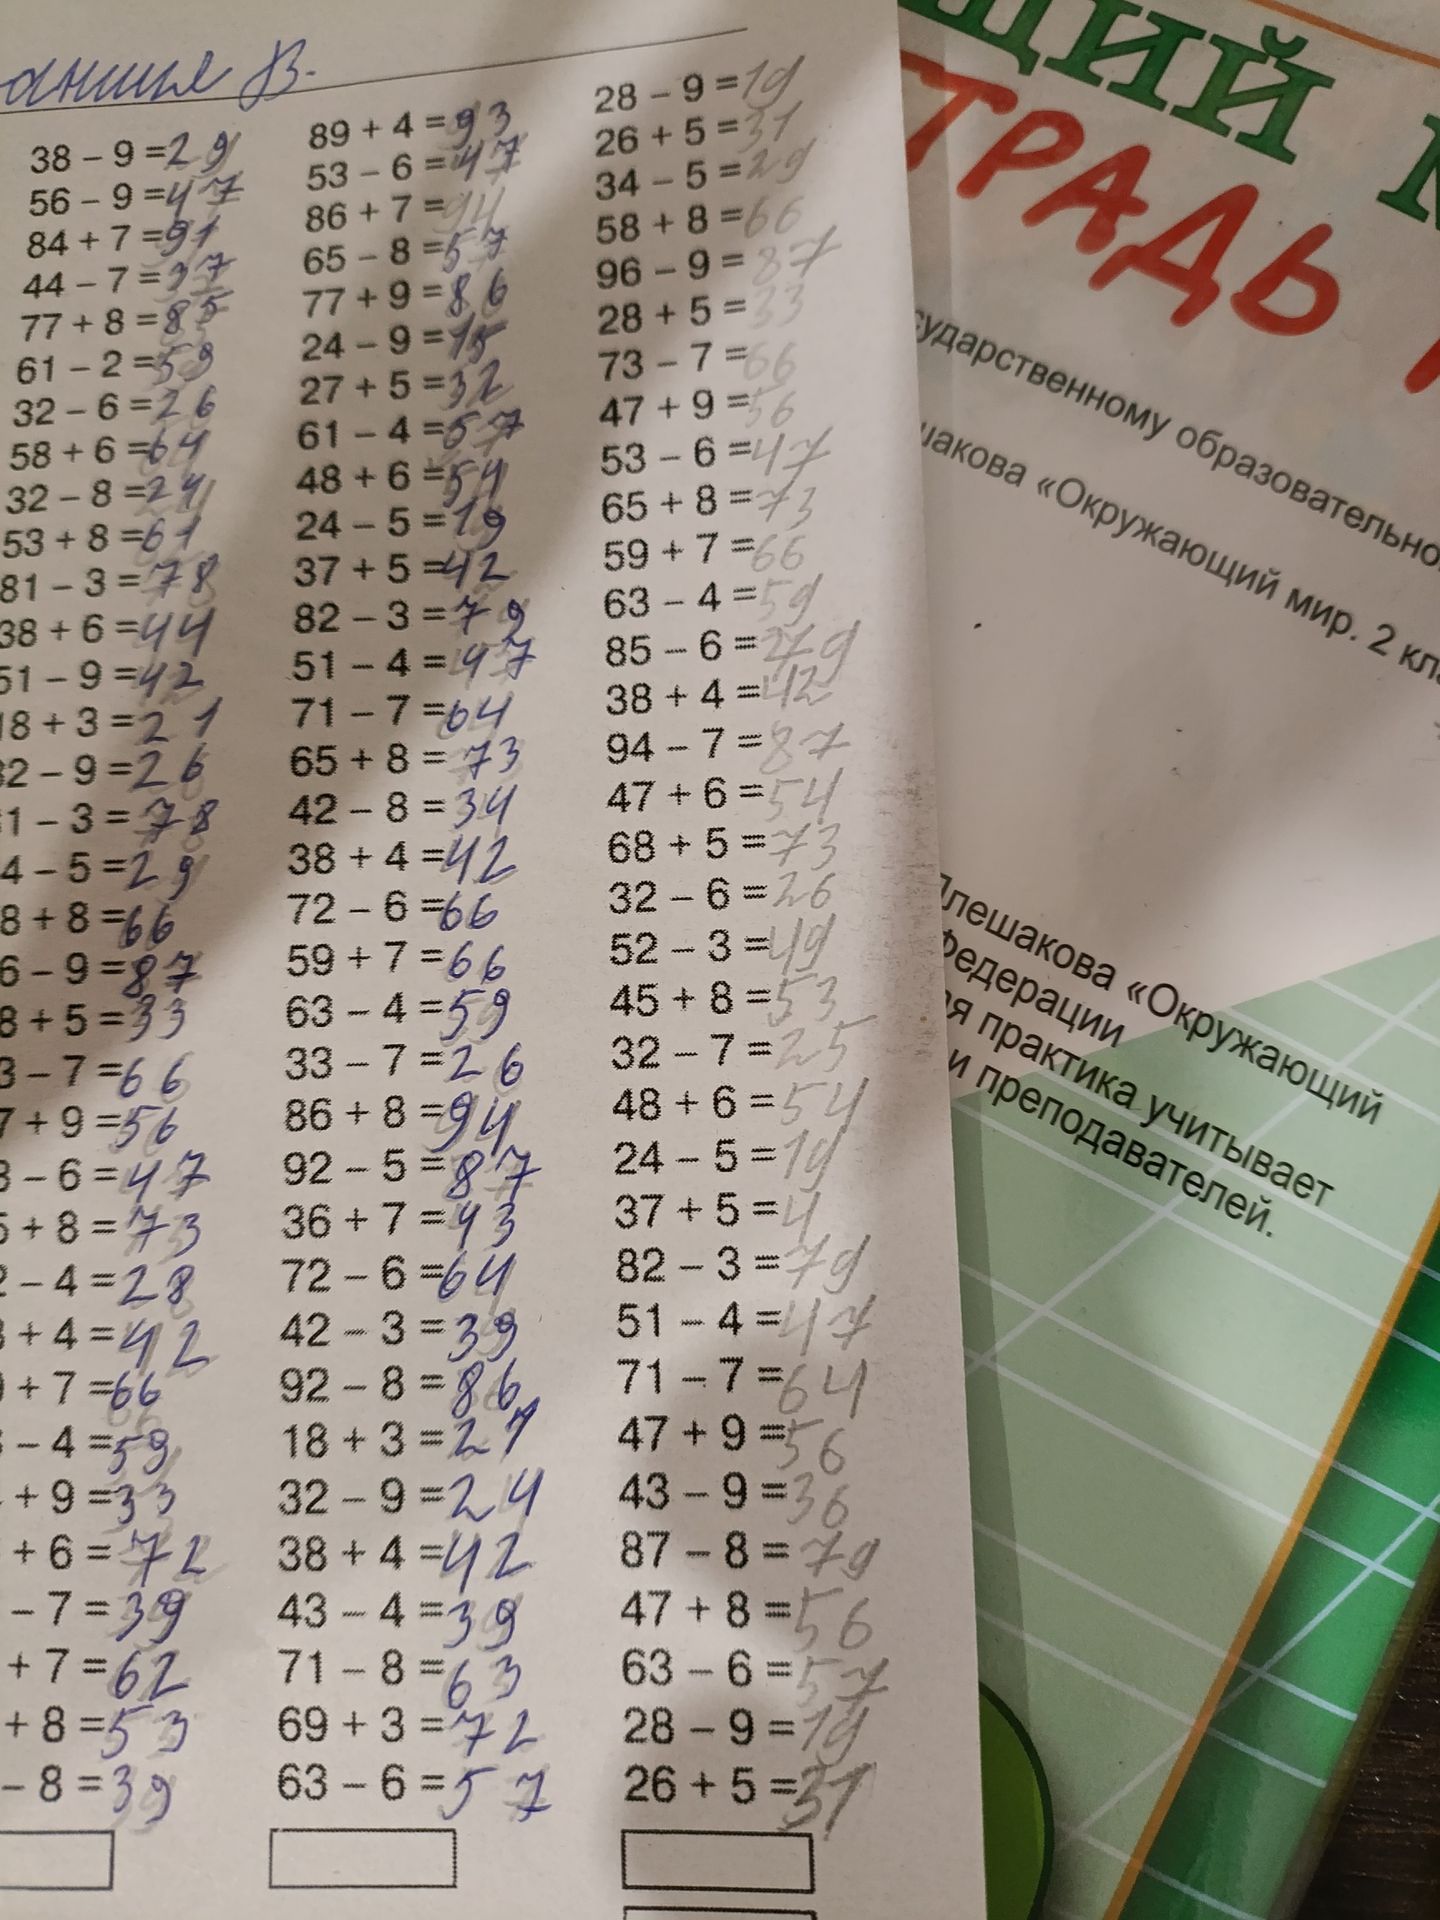 38 – 9 = 29
56 – 9 = 47
84 + 7 = 91
44 – 7 = 37
77 + 8 = 85
61 – 2 = 59
32 – 6 = 26
58 + 6 = 64
32 – 8 = 24
53 + 8 = 61
81 – 3 = 78
38 + 6 = 44
51 – 9 = 42
18 + 3 = 21
32 – 9 = 26
1 – 3 = 78
4 – 5 = 29
8 + 8 = 66
6 – 9 = 87
8 + 5 = 33
3 – 7 = 66
7 + 9 = 56
3 – 6 = 47
5 + 8 = 73
2 – 4 = 28
8 + 4 = 42
9 + 7 = 66
3 – 4 = 59
+ 9 = 33
+ 6 = 72
– 7 = 39
+ 7 = 62
+ 8 = 53
– 8 = 39
89 + 4 = 93
53 – 6 = 47
86 + 7 = 94
65 – 8 = 57
77 + 9 = 86
24 – 9 = 15
27 + 5 = 32
61 – 4 = 57
48 + 6 = 54
24 – 5 = 19
37 + 5 = 42
82 – 3 = 79
51 – 4 = 47
71 – 7 = 64
65 + 8 = 73
42 – 8 = 34
38 + 4 = 42
72 – 6 = 66
59 + 7 = 66
63 – 4 = 59
33 – 7 = 26
86 + 8 = 94
92 – 5 = 87
36 + 7 = 43
72 – 6 = 64
42 – 3 = 39
92 – 8 = 86
18 + 3 = 21
32 – 9 = 24
38 + 4 = 42
43 – 4 = 39
71 – 8 = 63
69 + 3 = 72
63 – 6 = 57
28 – 9 = 19
26 + 5 = 31
34 – 5 = 29
58 + 8 = 66
96 – 9 = 87
28 + 5 = 33
73 – 7 = 66
47 + 9 = 56
53 – 6 = 47
65 + 8 = 73
59 + 7 = 66
63 – 4 = 59
85 – 6 = 79
38 + 4 = 42
94 – 7 = 87
47 + 6 = 54
68 + 5 = 73
32 – 6 = 26
52 – 3 = 49
45 + 8 = 53
32 – 7 = 25
48 + 6 = 54
24 – 5 = 19
37 + 5 = 4
82 – 3 = 79
51 – 4 = 47
71 – 7 = 64
47 + 9 = 56
43 – 9 = 36
87 – 8 = 79
47 + 8 = 56
63 – 6 = 57
28 – 9 = 19
26 + 5 = 31
ЩИЙ М
ТРАДЬ
сударственному образовательно
шакова «Окружающий мир. 2 кла
Плешакова «Окружающий
Федерации
я практика учитывает
и преподавателей.